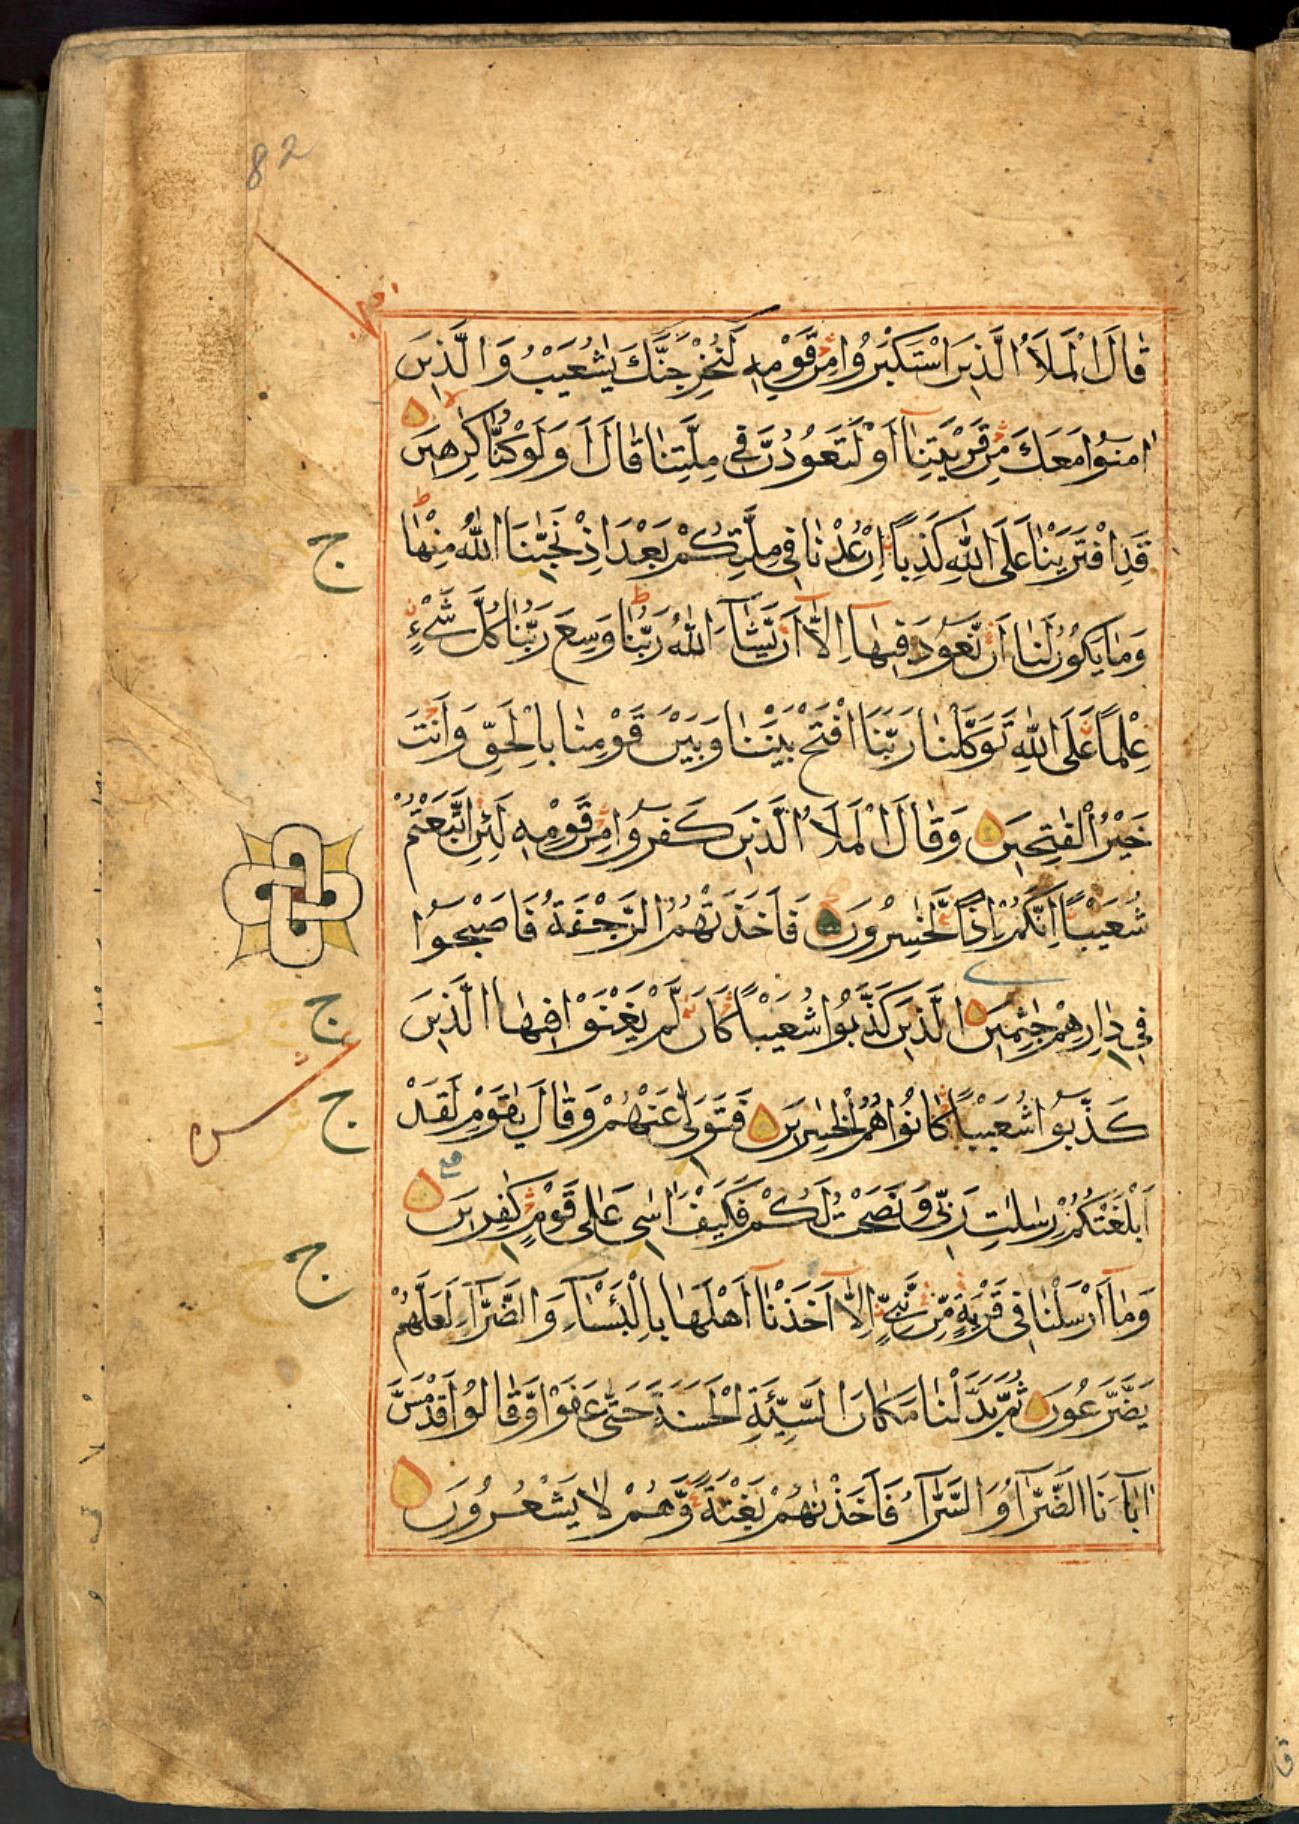 82
قَالَ الْمَلَاُ الَّذِيْنَ اسْتَكْبَرُوْا مِنْ قَوْمِهٖ لَنُخْرِجَنَّكَ يٰشُعَيْبُ وَالَّذِيْنَ
اٰمَنُوْا مَعَكَ مِنْ قَرْيَتِنَآ اَوْ لَتَعُوْدُنَّ فِيْ مِلَّتِنَا قَالَ اَوَلَوْ كُنَّا كٰرِهِيْنَ
قَدِ افْتَرَيْنَا عَلَى اللّٰهِ كَذِبًا اِنْ عُدْنَا فِيْ مِلَّتِكُمْ بَعْدَ اِذْ نَجّٰىنَا اللّٰهُ مِنْهَا ط
ج
وَمَا يَكُوْنُ لَنَآ اَنْ نَّعُوْدَ فِيْهَآ اِلَّآ اَنْ يَّشَآءَ اللّٰهُ رَبُّنَا ط وَسِعَ رَبُّنَا كُلَّ شَيْءٍ
عِلْمًا عَلَى اللّٰهِ تَوَكَّلْنَا رَبَّنَا افْتَحْ بَيْنَنَا وَبَيْنَ قَوْمِنَا بِالْحَقِّ وَاَنْتَ
خَيْرُ الْفٰتِحِيْنَ وَقَالَ الْمَلَاُ الَّذِيْنَ كَفَرُوْا مِنْ قَوْمِهٖ لَئِنِ اتَّبَعْتُمْ
شُعَيْبًا اِنَّكُمْ اِذًا لَّخٰسِرُوْنَ فَاَخَذَتْهُمُ الرَّجْفَةُ فَاَصْبَحُوْا
فِيْ دَارِهِمْ جٰثِمِيْنَ الَّذِيْنَ كَذَّبُوْا شُعَيْبًا كَاَنْ لَّمْ يَغْنَوْا فِيْهَا الَّذِيْنَ
ج
كَذَّبُوْا شُعَيْبًا كَانُوْا هُمُ الْخٰسِرِيْنَ فَتَوَلّٰى عَنْهُمْ وَقَالَ يٰقَوْمِ لَقَدْ
ج
اَبْلَغْتُكُمْ رِسٰلٰتِ رَبِّيْ وَنَصَحْتُ لَكُمْ فَكَيْفَ اٰسٰى عَلٰى قَوْمٍ كٰفِرِيْنَ
ج
وَمَآ اَرْسَلْنَا فِيْ قَرْيَةٍ مِّنْ نَّبِيٍّ اِلَّآ اَخَذْنَآ اَهْلَهَا بِالْبَأْسَآءِ وَالضَّرَّآءِ لَعَلَّهُمْ
يَضَّرَّعُوْنَ ثُمَّ بَدَّلْنَا مَكَانَ السَّيِّئَةِ الْحَسَنَةَ حَتّٰى عَفَوْا وَّقَالُوْا قَدْ مَسَّ
اٰبَآءَنَا الضَّرَّآءُ وَالسَّرَّآءُ فَاَخَذْنٰهُمْ بَغْتَةً وَّهُمْ لَا يَشْعُرُوْنَ